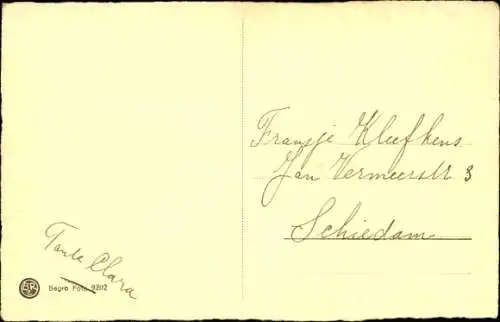 Fransje Kleefkens
Jan Vermeerstr 3
Schiedam
Tante Clara
Begro Foto 9202